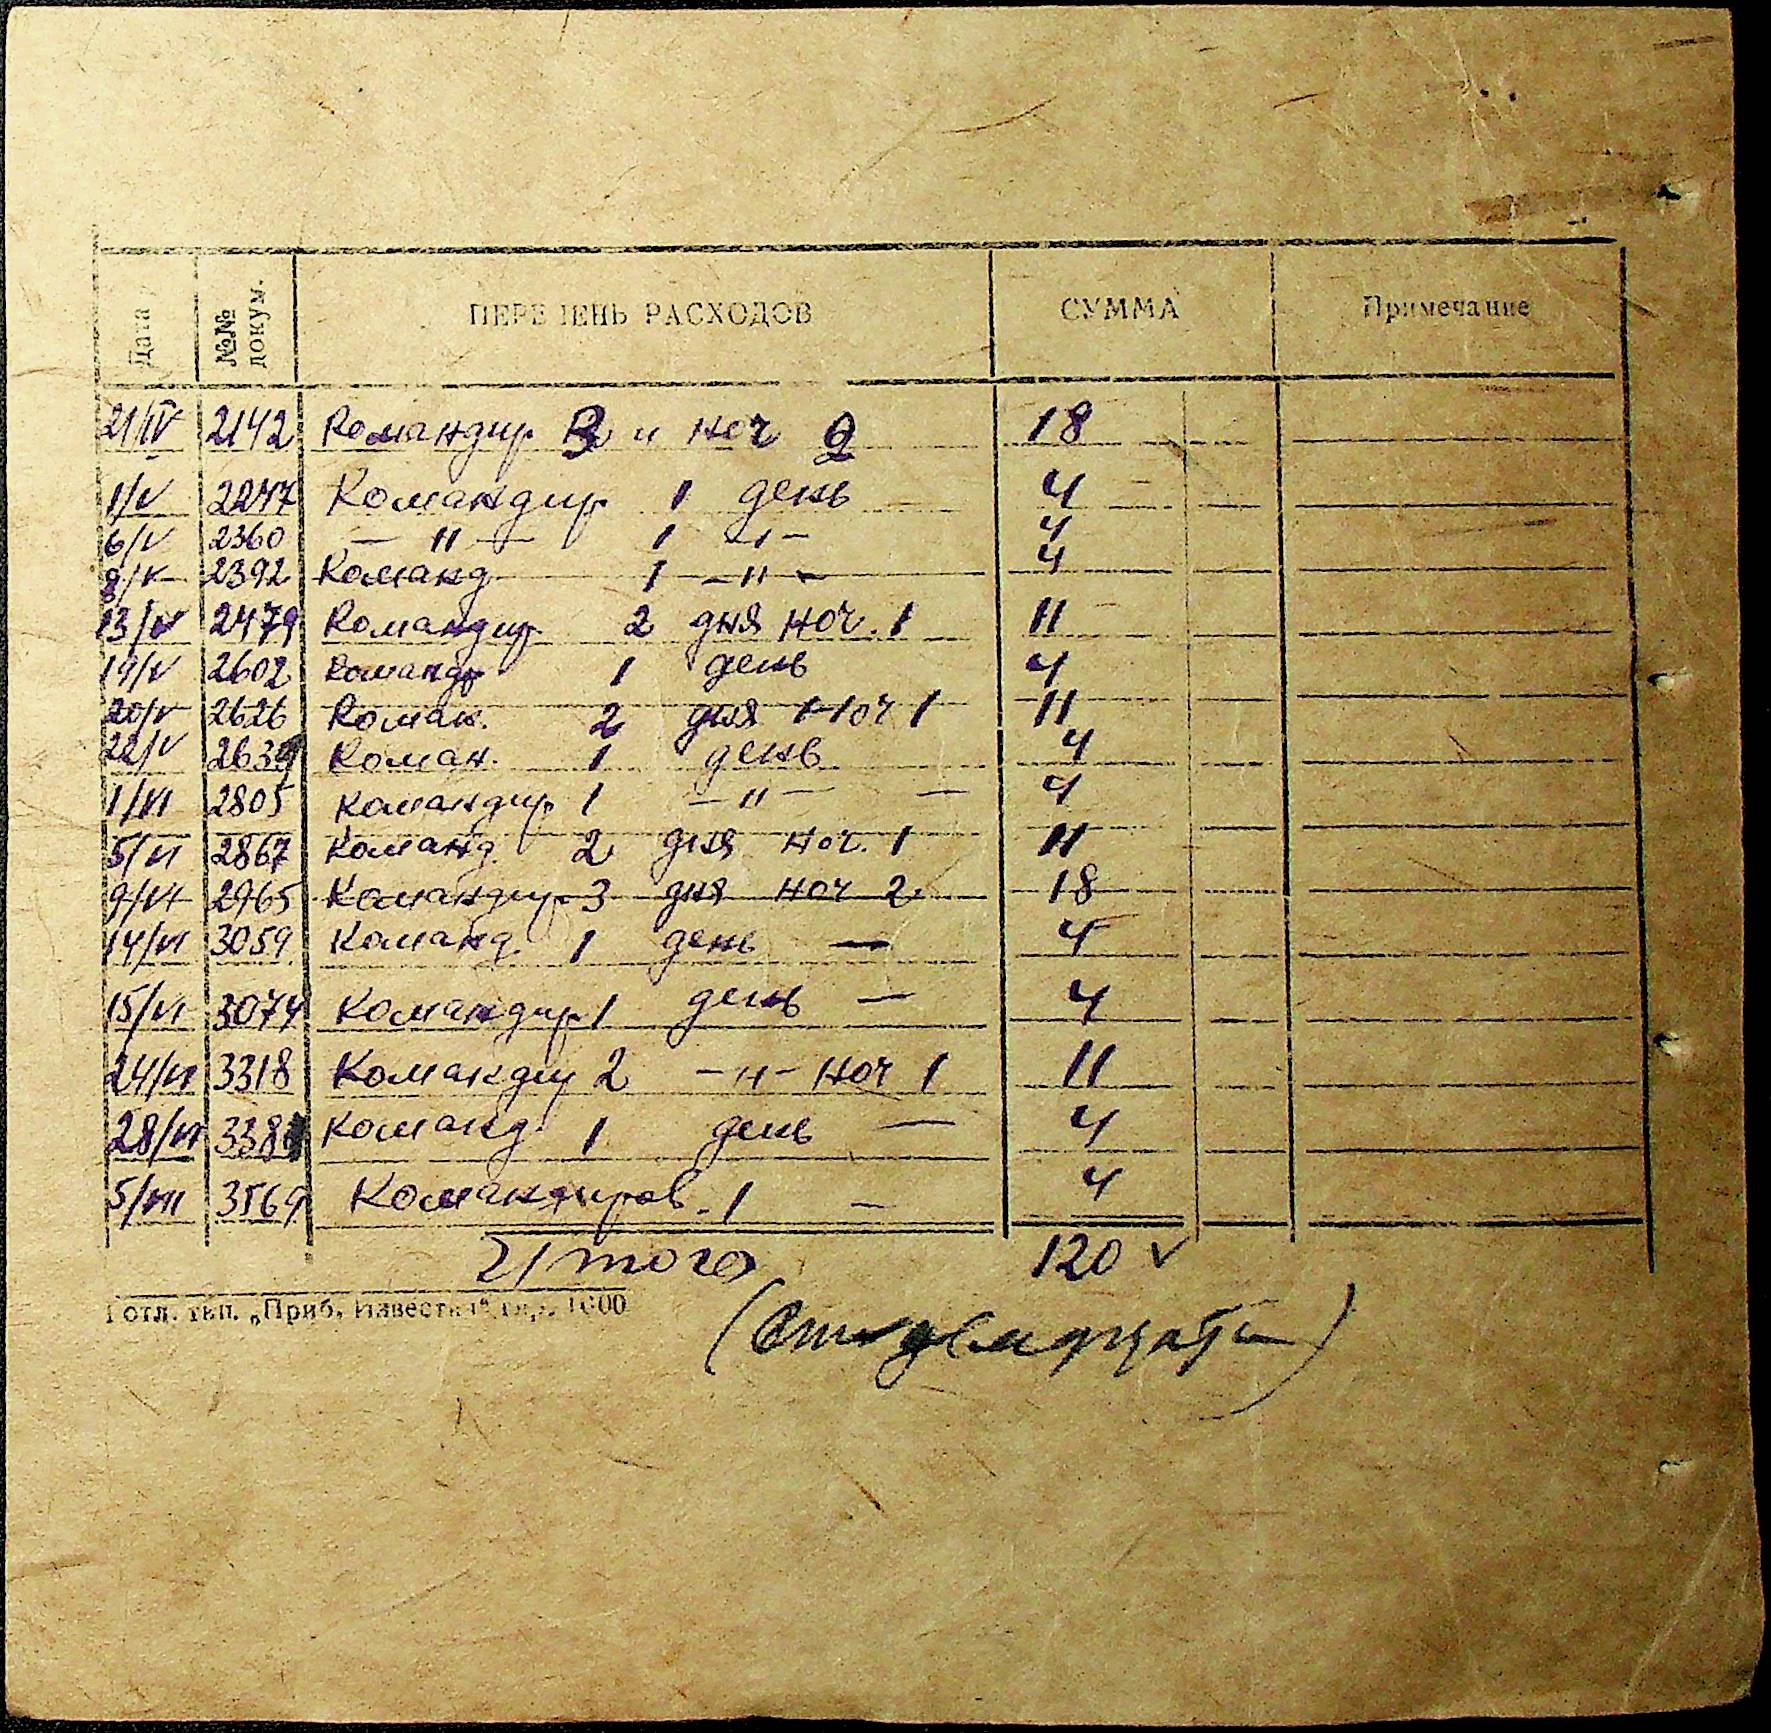 Дата №№ докум. ПЕРЕЧЕНЬ РАСХОДОВ СУММА Примечание
21/IV 2142 Командир. 3 и ноч 2 18
1/V 2247 Командир. 1 день — 4 —
6/V 2360 — " — 1 — " — 4
8/V 2392 Команд 1 — " — 4
13/V 2479 Командир. 2 дня ноч. 1 11 —
19/V 2602 Команд 1 день 4
20/V 2626 Коман. 2 дня ноч 1 11
22/V 2639 Коман. 1 день 4
1/VI 2805 Командир 1 — " — — 4
5/VI 2867 Команд. 2 дня ноч. 1 11
9/VI 2965 Командир. 3 дня ноч 2 18
14/VI 3059 Команд. 1 день — 4
15/VI 3074 Командир. 1 день — 4
24/VI 3318 Командир 2 — " — ноч 1 11
28/VI 338 Команд 1 день — 4
5/VII 3569 Командиров. 1 — 4
Итого 120 ✓
Готл. тип. „Приб. Известия“ 1000